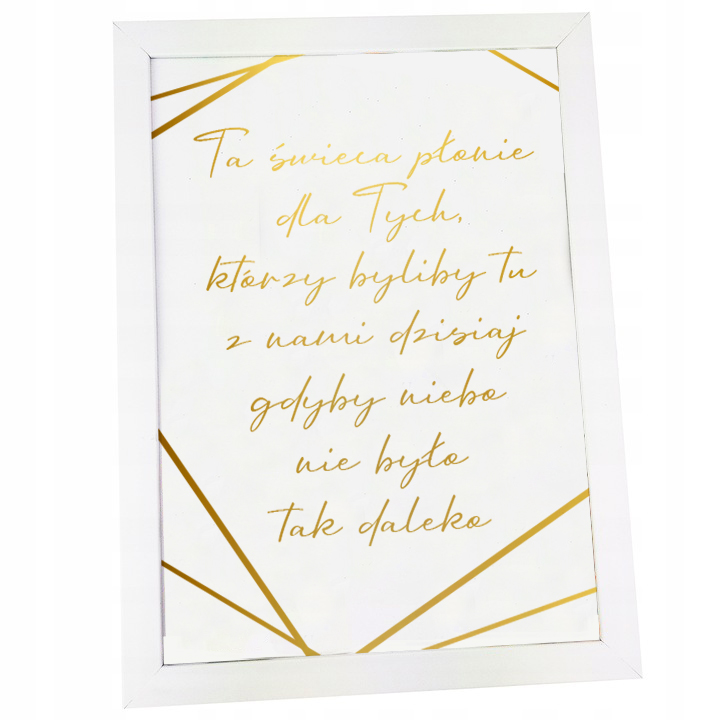 Ta świeca płonie
dla Tych,
którzy byliby tu
z nami dzisiaj
gdyby niebo
nie było
tak daleko